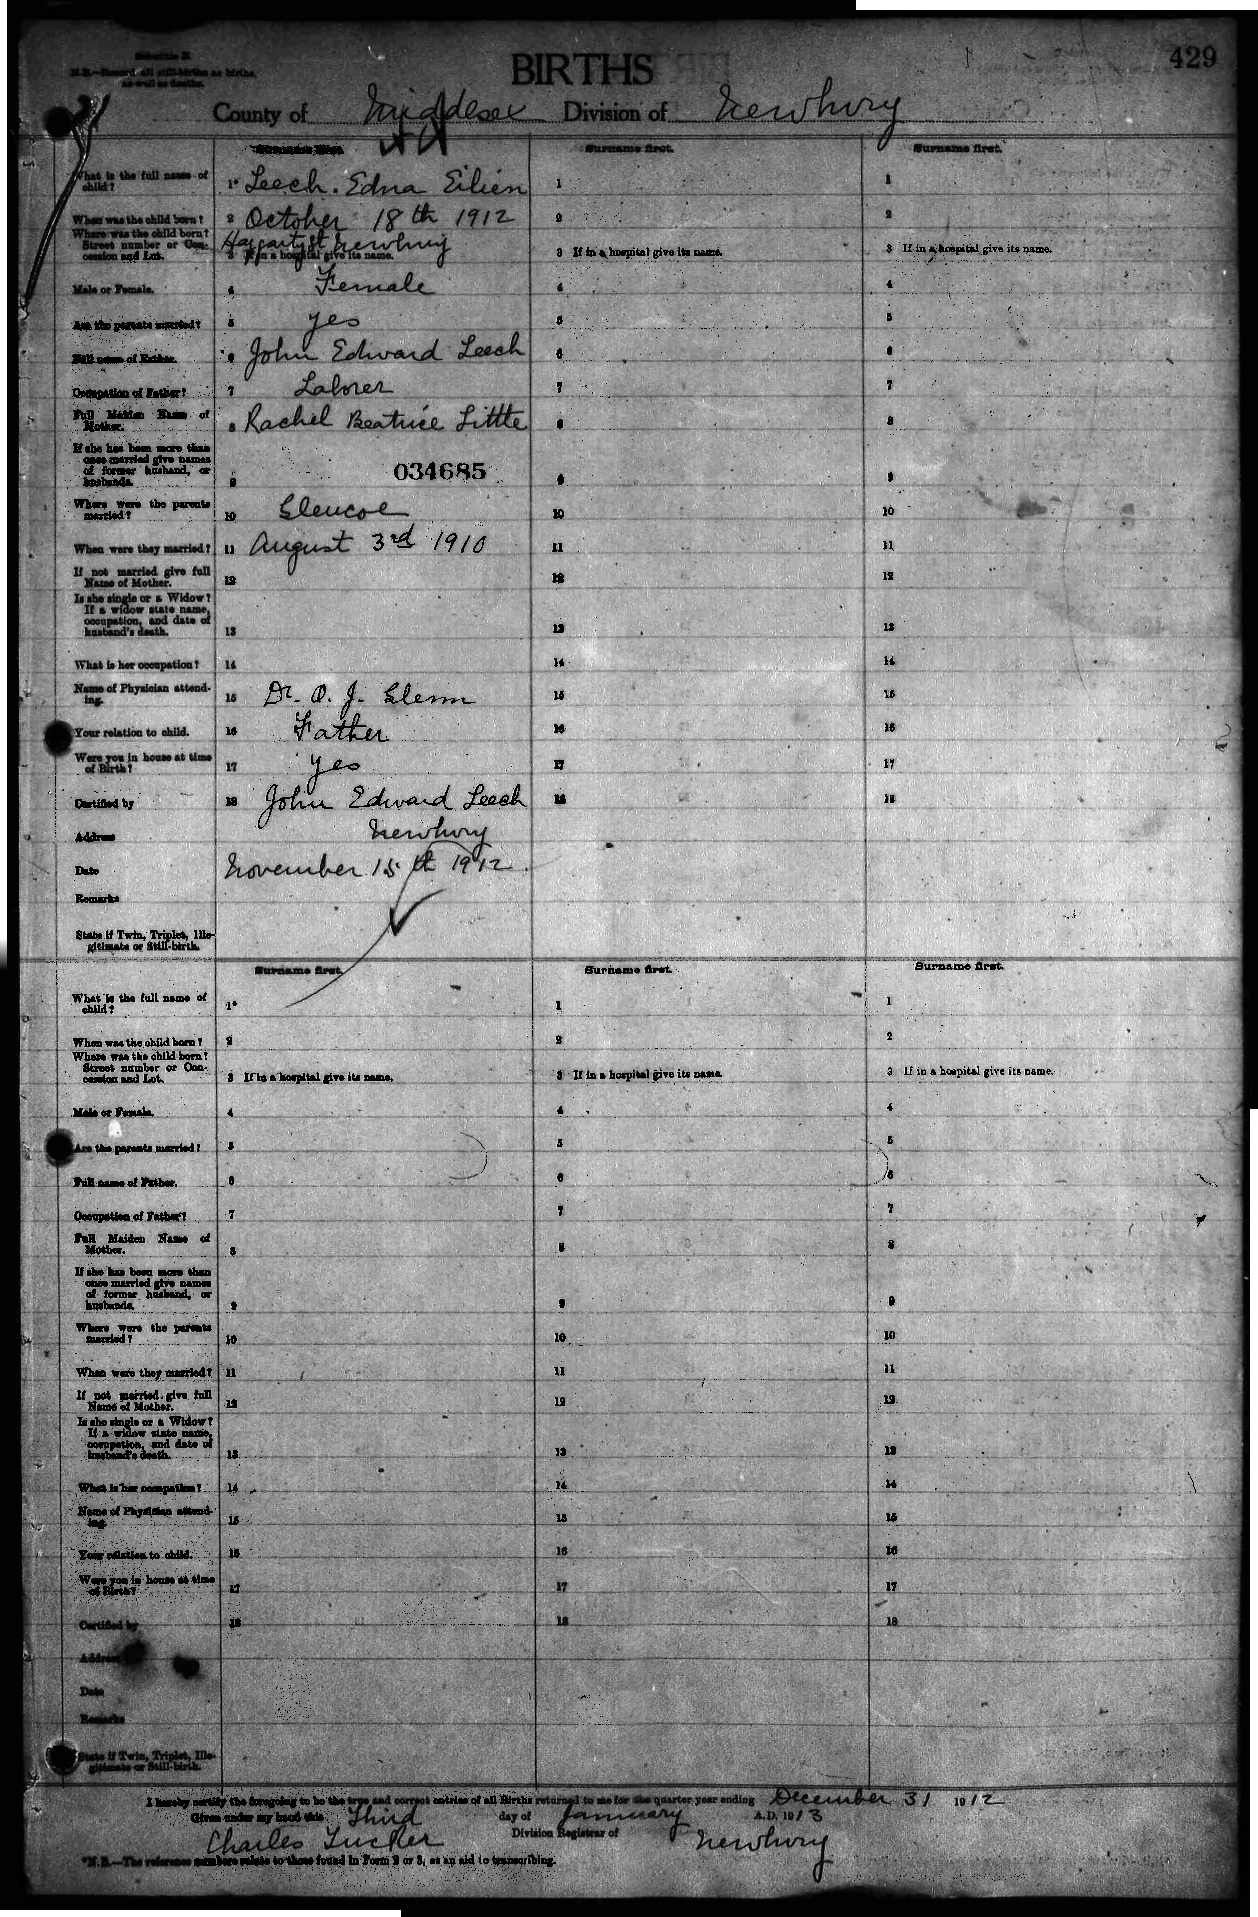 Schedule B.
N.B.—Record all still-births as births,
as well as deaths.
BIRTHS
429
County of Middlesex Division of Newbury
Surname first.
Surname first.
Surname first.
What is the full name of child? 1* Leech. Edna Eilien
1
1
When was the child born? 2 October 18th 1912
2
2
Where was the child born? Street number or Concession and Lot. Haggarty st Newbury
3 If in a hospital give its name.
3 If in a hospital give its name.
3 If in a hospital give its name.
Male or Female. 4 Female
4
4
Are the parents married? 5 yes
5
5
Full name of Father. 6 John Edward Leech
6
6
Occupation of Father? 7 Laborer
7
7
Full Maiden Name of Mother. 8 Rachel Beatrice Little
8
8
If she has been more than once married give names of former husband, or husbands. 9 034685
9
9
Where were the parents married? 10 Glencoe
10
10
When were they married? 11 August 3rd 1910
11
11
If not married give full Name of Mother. 12
12
12
Is she single or a Widow? If a widow state name, occupation, and date of husband's death. 13
13
13
What is her occupation? 14
14
14
Name of Physician attending. 15 Dr. O. J. Glenn
15
15
Your relation to child. 16 Father
16
16
Were you in house at time of Birth? 17 yes
17
17
Certified by 18 John Edward Leech
18
18
Address Newbury
Date November 15th 1912.
Remarks
State if Twin, Triplet, Illegitimate or Still-birth.
Surname first.
Surname first.
Surname first.
What is the full name of child? 1*
1
1
When was the child born? 2
2
2
Where was the child born? Street number or Concession and Lot. 3 If in a hospital give its name.
3 If in a hospital give its name.
3 If in a hospital give its name.
Male or Female. 4
4
4
Are the parents married? 5
5
5
Full name of Father. 6
6
6
Occupation of Father? 7
7
7
Full Maiden Name of Mother. 8
8
8
If she has been more than once married give names of former husband, or husbands. 9
9
9
Where were the parents married? 10
10
10
When were they married? 11
11
11
If not married give full Name of Mother. 12
12
12
Is she single or a Widow? If a widow state name, occupation, and date of husband's death. 13
13
13
What is her occupation? 14
14
14
Name of Physician attending. 15
15
15
Your relation to child. 16
16
16
Were you in house at time of Birth? 17
17
17
Certified by 18
18
18
Address
Date
Remarks
State if Twin, Triplet, Illegitimate or Still-birth.
I hereby certify the foregoing to be the true and correct entries of all Births returned to me for the quarter year ending December 31 1912
Given under my hand this Third day of January A.D. 1913
Charles Tucker Division Registrar of Newbury
*N.B.—The reference numbers relate to those found in Form 2 or 3, as an aid to transcribing.